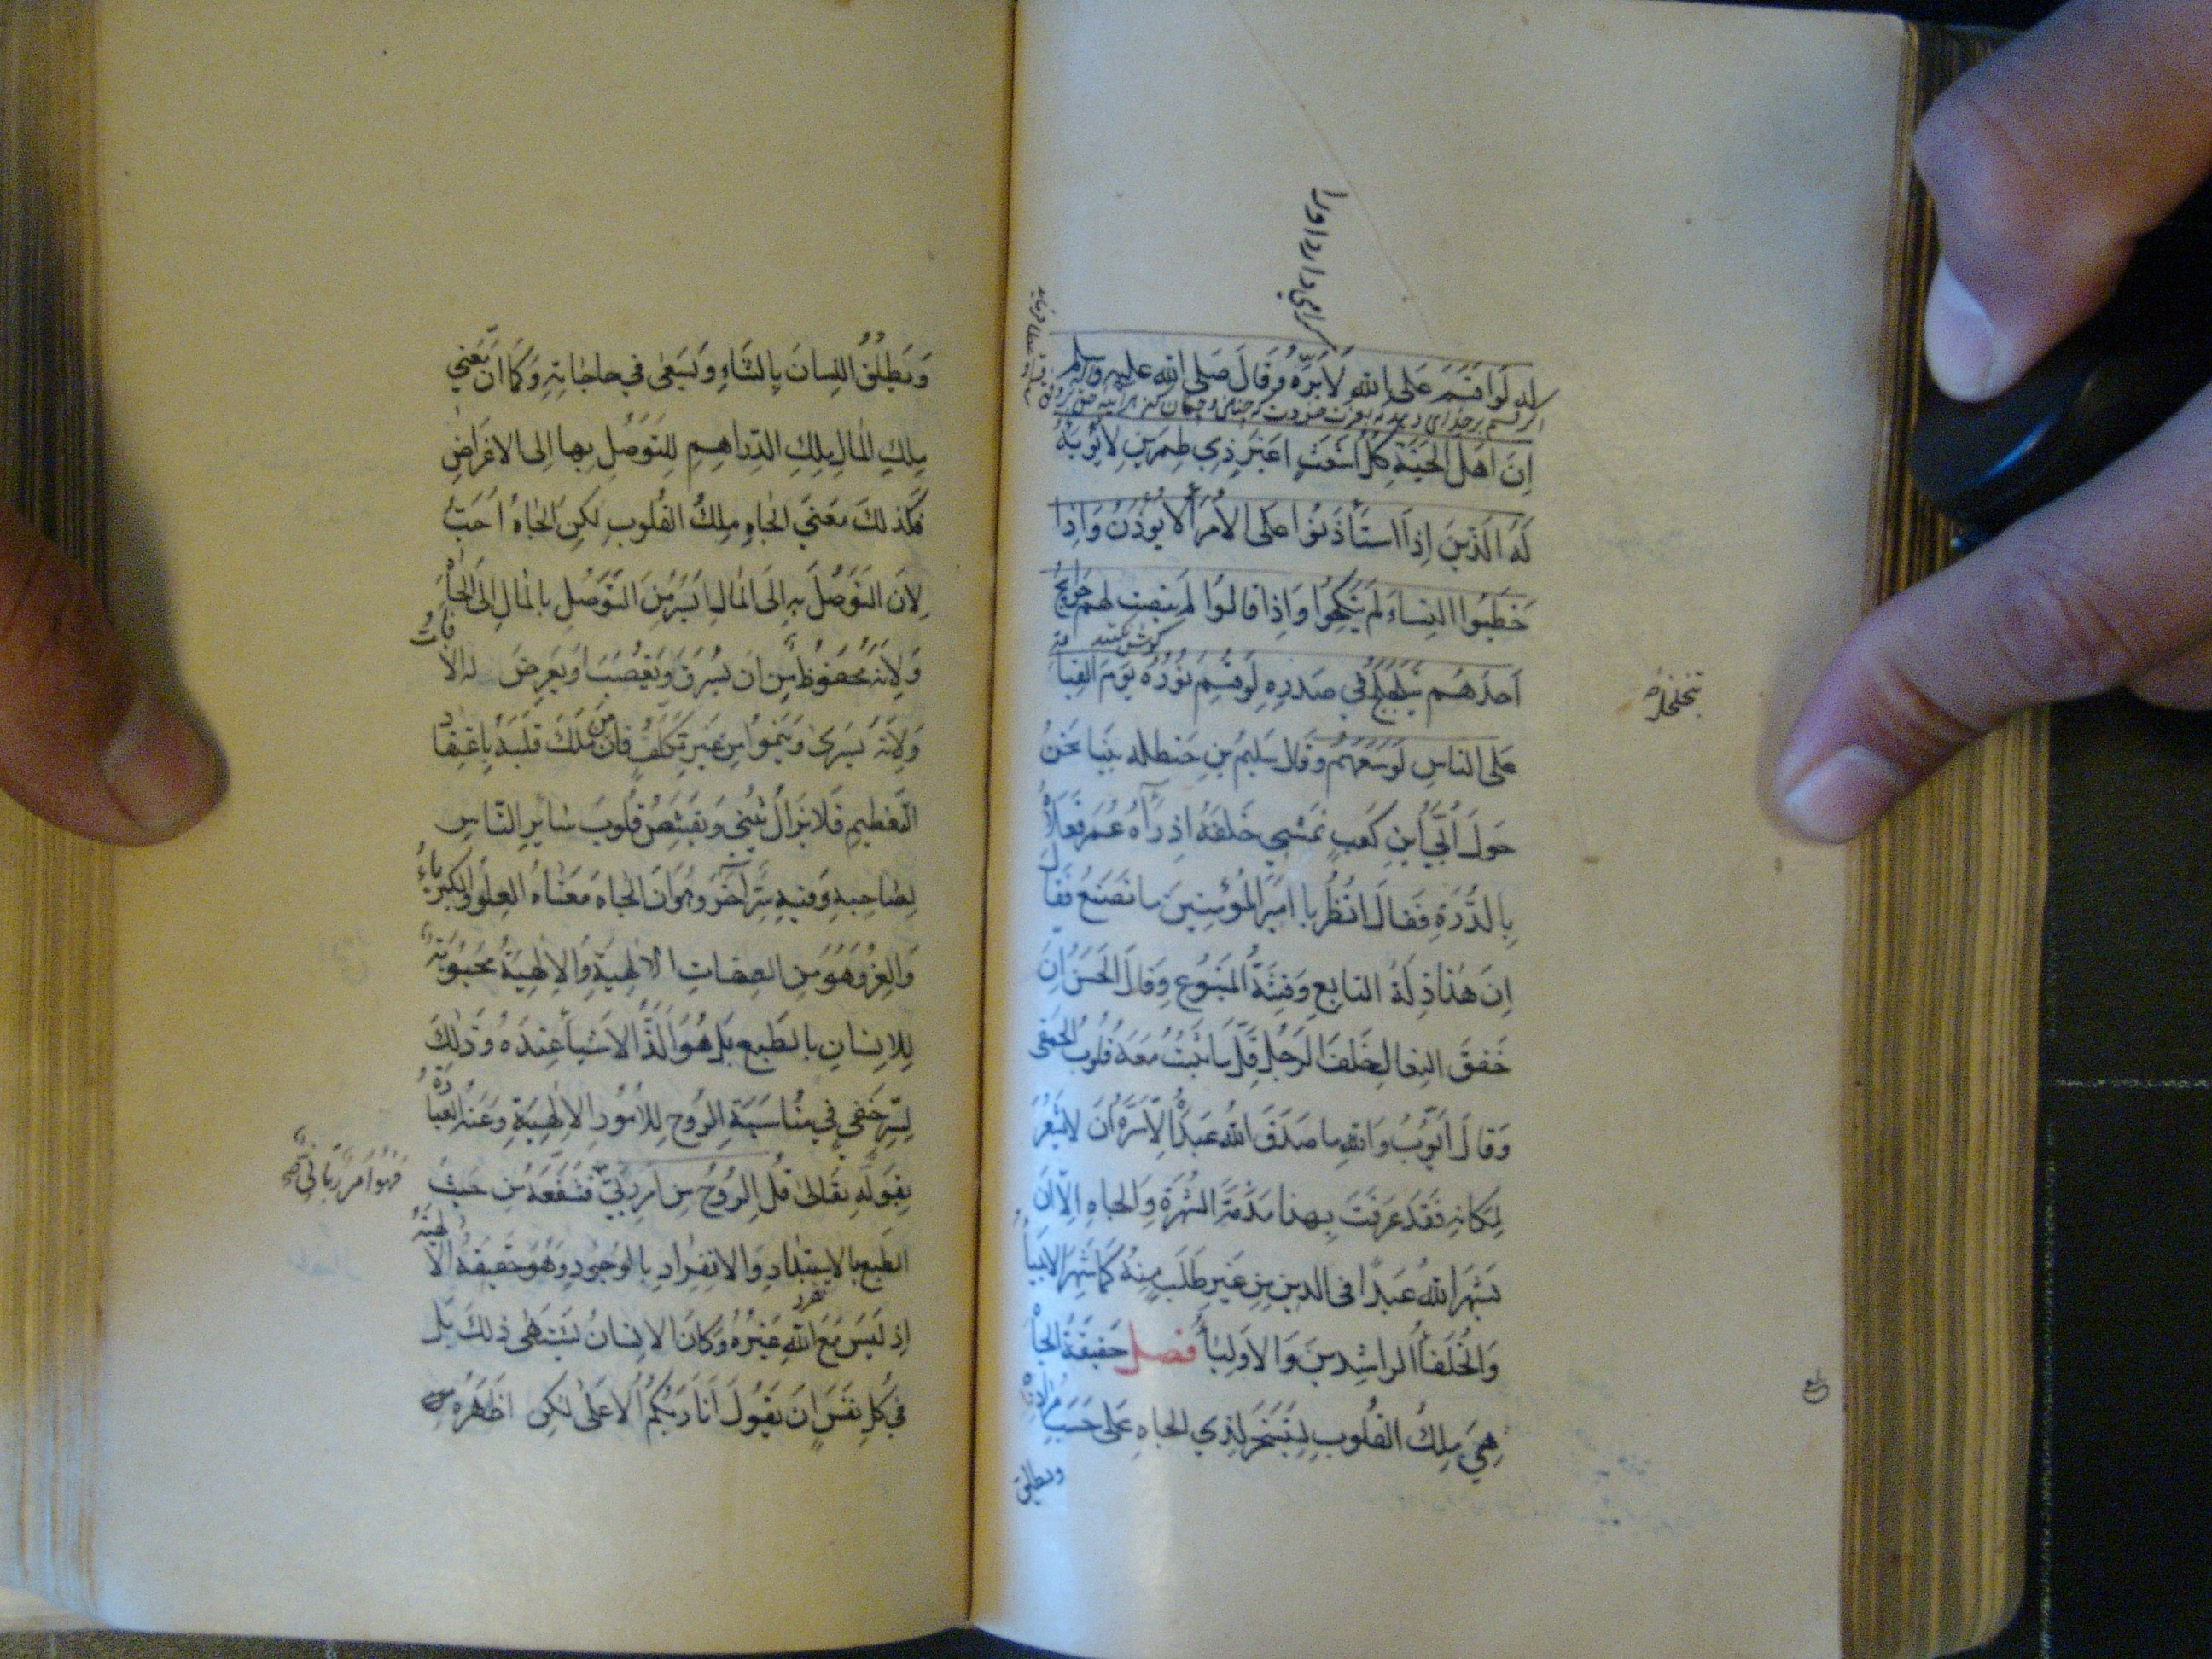 له لو اقسم على الله لأبره وقال صلى الله عليه وسلم
إن أهل الجنة كل أشعث أغبر ذي طمرين لا يؤبه
له الذين إذا استأذنوا على الأمراء لا يؤذن وإذا
خطبوا النساء لم ينكحوا وإذا قالوا لم ينصت لهم حوائج
أحدهم يتلجلج في صدره لو قسم نوره يوم القيا مة
على الناس لوسعهم وقال سليم بن حنظله بينا نحن
حول أبي ابن كعب نمشي خلفه اذ رآه عمر فعلاه
بالدرة فقال انظر يا امير المؤمنين ما تصنع فقال
إن هذا ذلة التابع وفتنة المتبوع وقال الحسن إن
خفق النعال خلف الرجل قل ما تثبت معه قلوب الحمقى
وقال أيوب والله ما صدق الله عبدا إلا سره أن لا يشعر
بمكانه فقد عرفت بهذا مذمة الشهرة والجاه إلا أن
يشهر الله عبدا في الدين من غير طلب منه كما شهر الانبياء
والخلفاء الراشدين والأولياء فصل حقيقة الجاه
هي ملك القلوب ليتسخر لذي الجاه على حسب مراده
ويطلق
ويطلق اللسان بالثناء ويسعى في حاجاته وكما ان معنى
ملك المال ملك الدراهم للتوصل بها إلى الاغراض
فكذلك معنى الجاه ملك القلوب لكن الجاه أحب
لأن التوصل به إلى المال ايسر من التوصل بالمال إلى الجاه
ولأنه محفوظ من ان يسرق ويغصب او يعرض له الآفات
ولأنه يسرى وينموا من غير تكلف فان من ملك قلبه باعتقاد
التعظيم فلا يزال يثني ويقتنص قلوب ساير الناس
لصاحبه وفيه سر آخر وهو أن الجاه معناه العلو والكبرياء
والعز وهو من الصفات الالهية والالهية محبوبة
للإنسان بالطبع بل هو ألذ الاشياء عنده وذلك
لسر خفي في مناسبة الروح للأمور الالهية وعنه العبارة
بقوله تعالى قل الروح من امر ربي فشغفه من حيث
فهو امر رباني
الطبع بالاستبداد والانفراد بالوجود وهو حقيقة الالهية
إذ ليس مع الله غيره وكان الإنسان يشتهي ذلك بل
في كل نفس ان يقول أنا ربكم الاعلى لكن اظهره